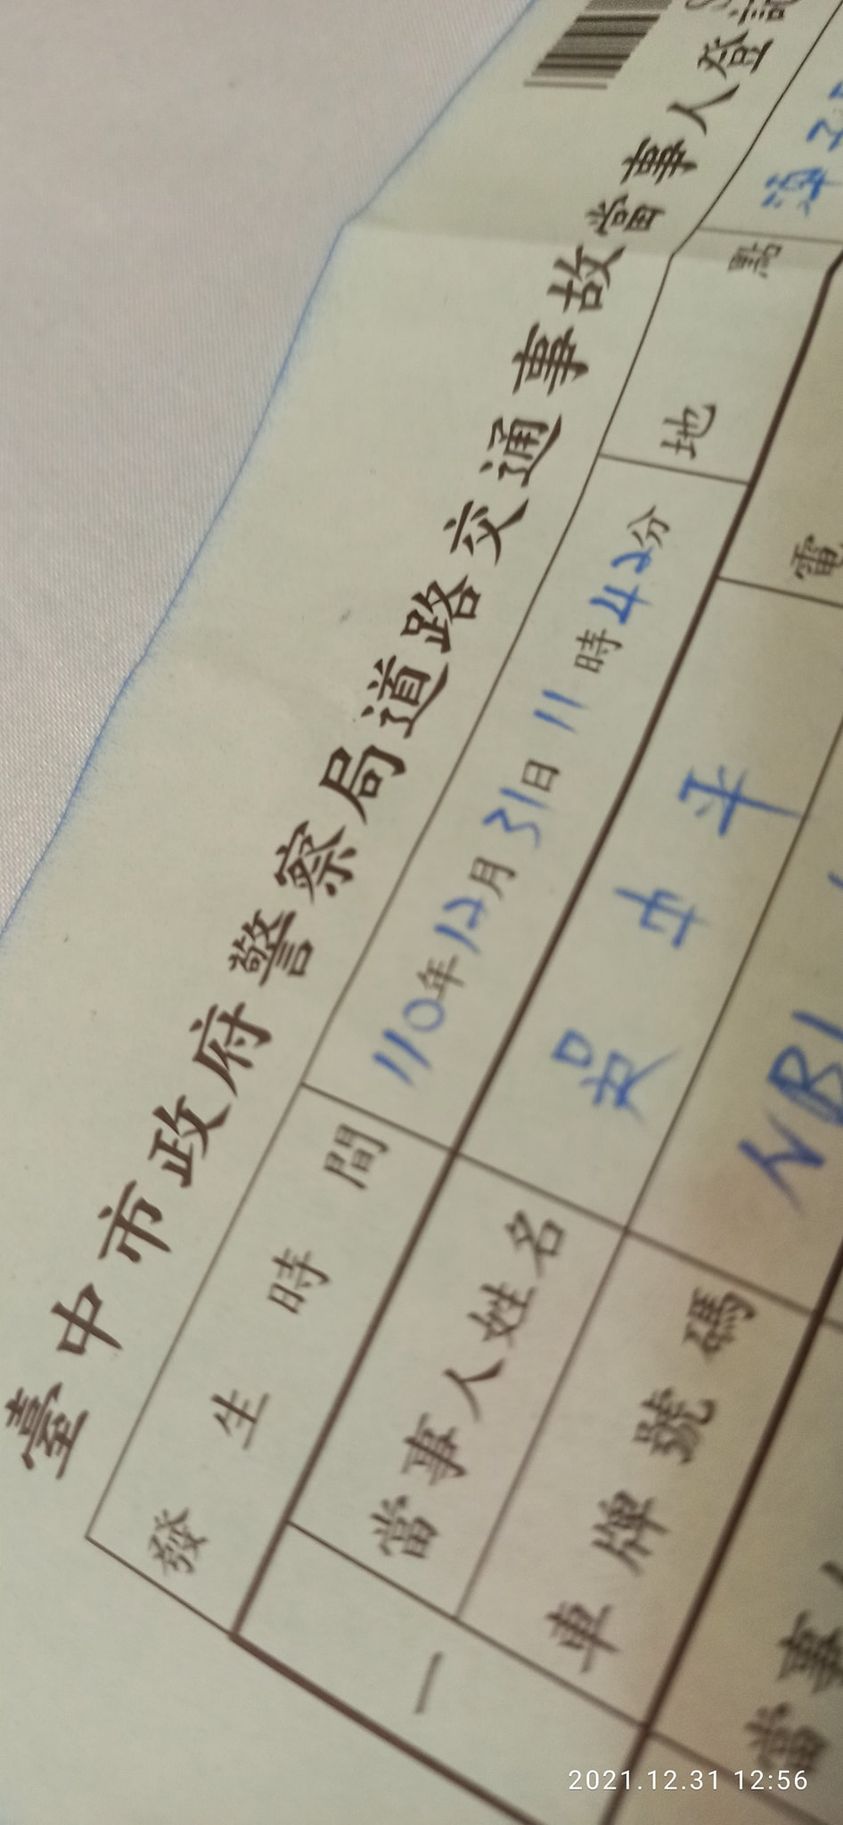 臺中市政府警察局道路交通事故當事人登
發生時間 110年12月31日11時42分 地點
一 當事人姓名 吳中平 電
車牌號碼 NB
當事
2021.12.31 12:56